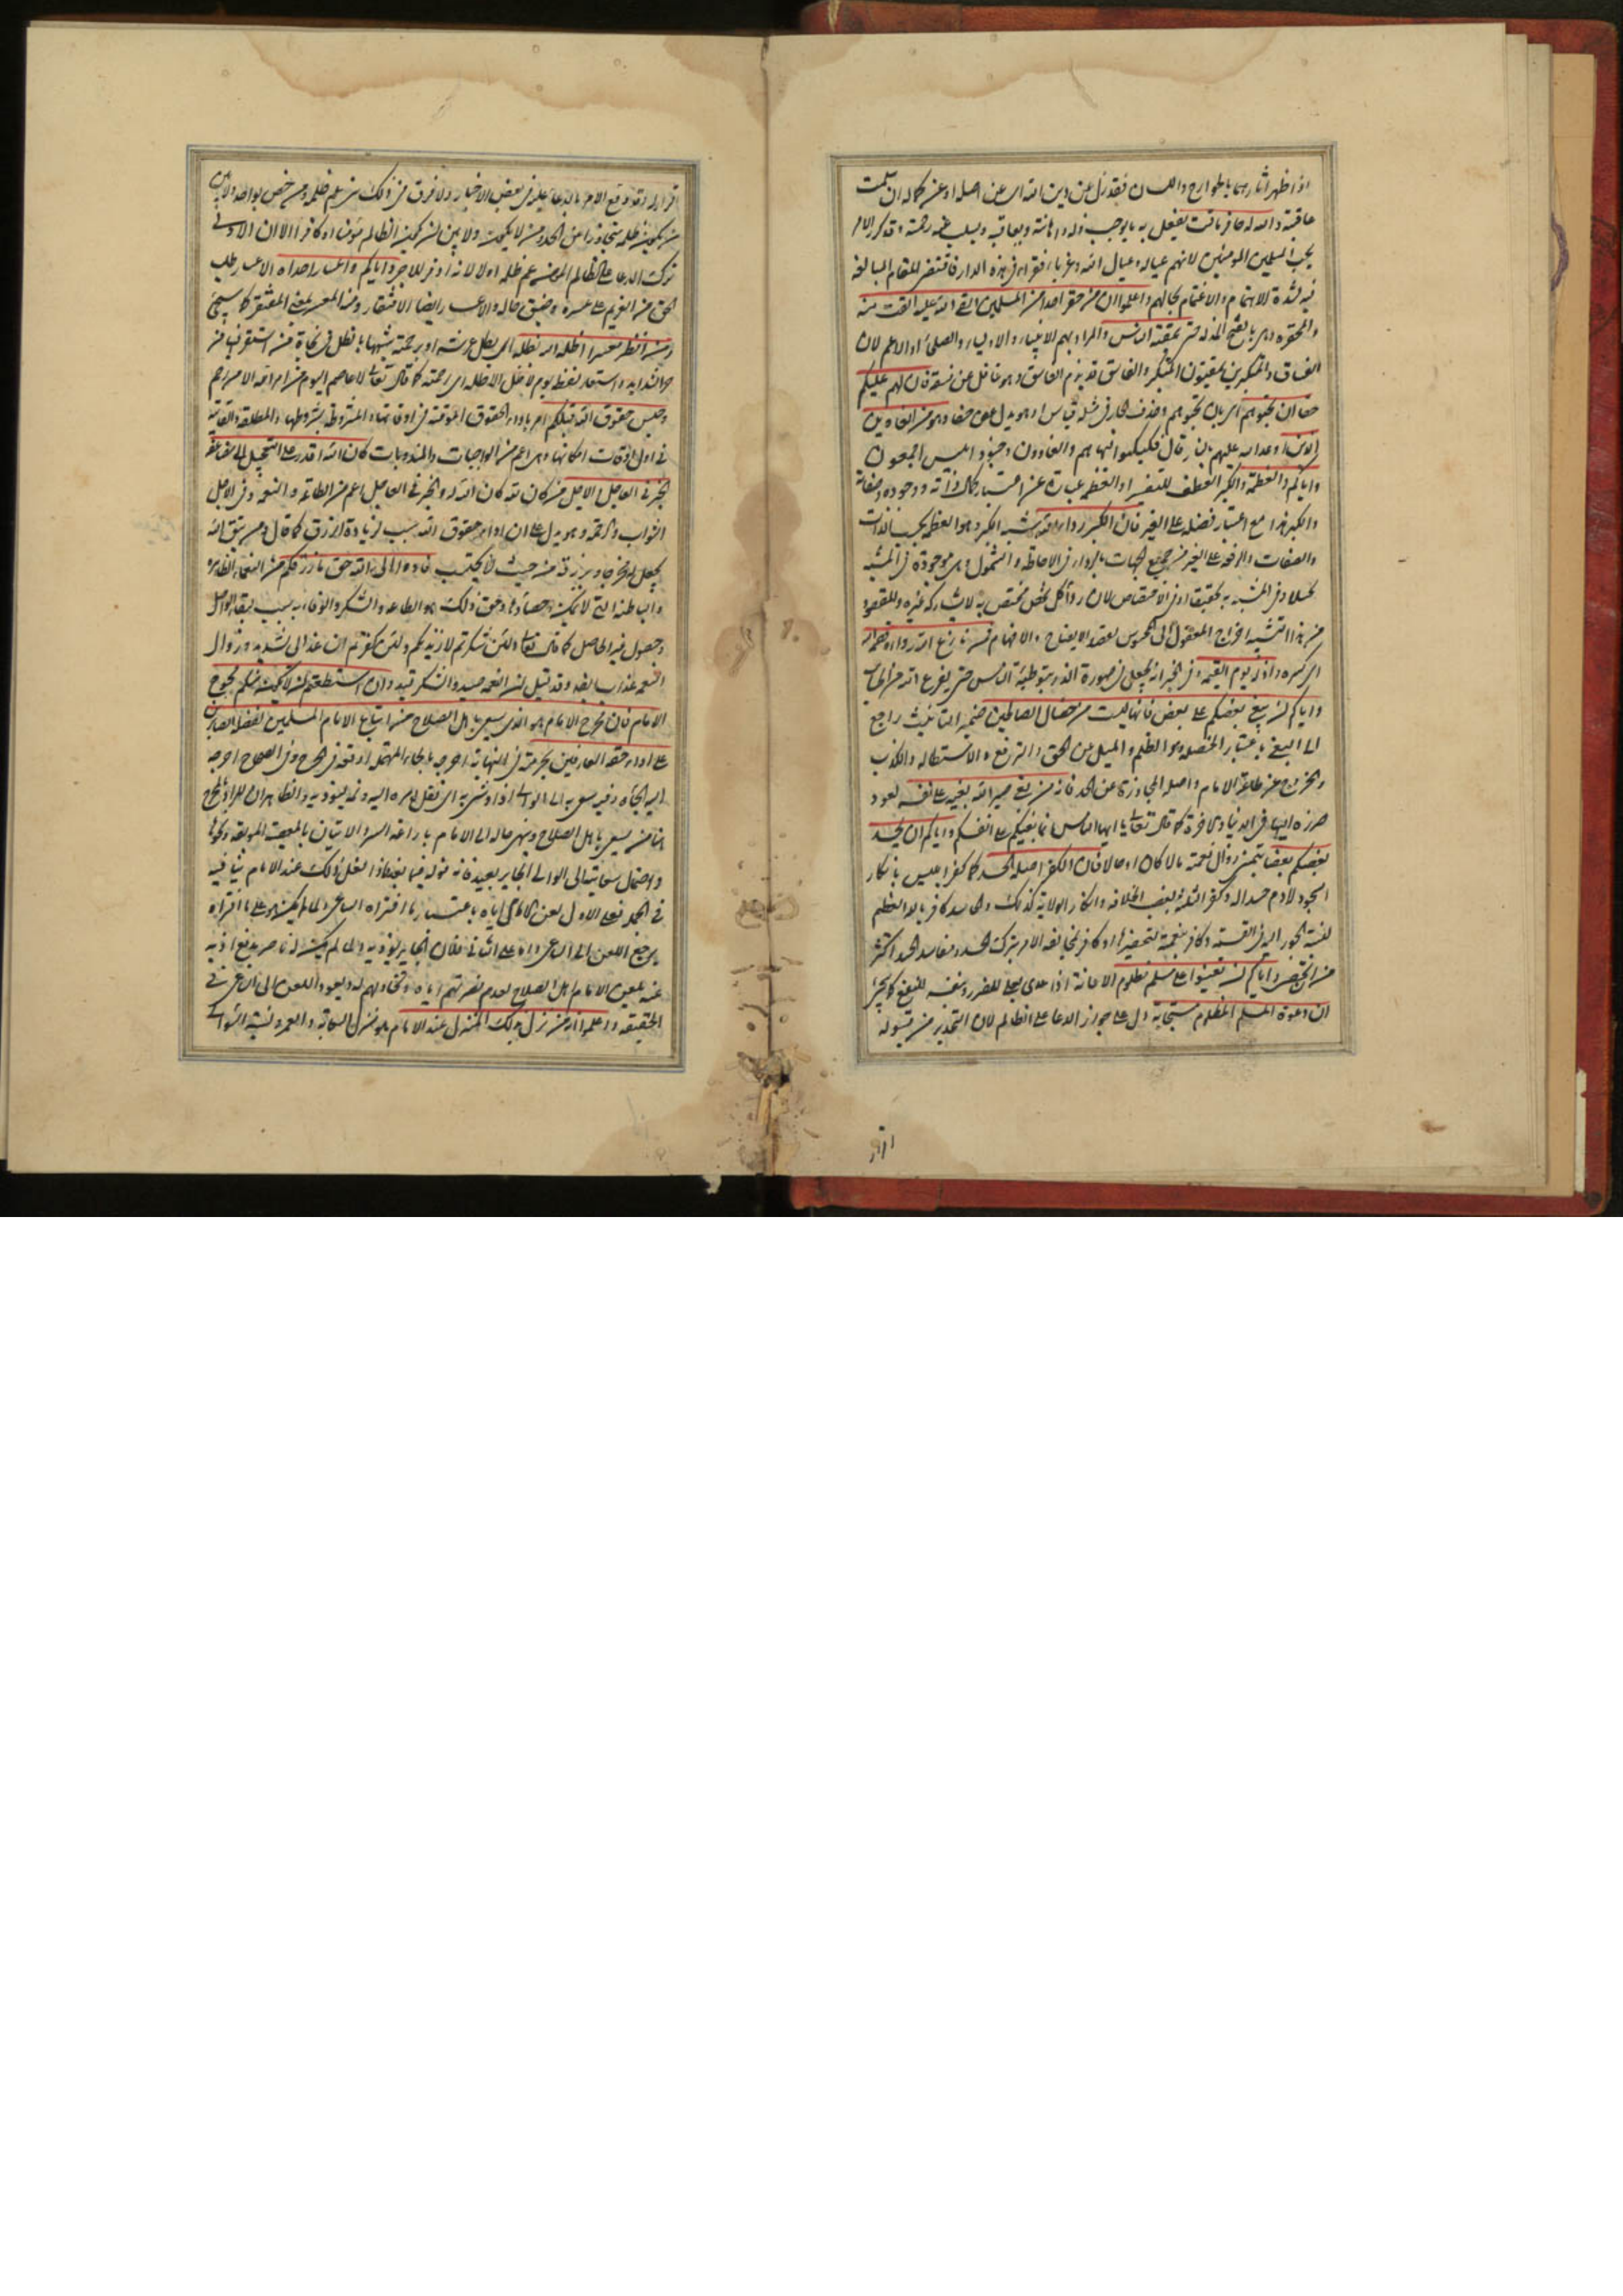 اذا ظهر آثارهما بالجوارح واللسان فقد زل عن دين الله اى عن اصله او عن كماله ان تمت
عاقبة والله له حافر ماقت يفعل به ما يوجب ذله واهانته ويعاقبه ويسلب عنه رحمته وقد كرر الامر
بحب المسلمين المؤمنين لانهم عياله وعيال الله وغرباء فقراء فى هذه الدار فاقتضى المقام المبالغة
فيه لشدة الاهتمام والاغتمام بحالهم واعلموا ان من حقر احدا من المسلمين القى الله عليه المقت منه
والمحقرة وهى بالفتح المذلة حتى يمقته الناس والمراد بهم الانبياء والاولياء والصلحاء او الاعم لان
الفساق والمتكبرين يمقتون المتكبر والفاسق قد يذم الفاسق وهو غافل عن فسقه فان لهم عليكم
حقا ان تحبوهم اى بان تحبوهم وحذف الجار فى مثله قياس او هو بدل عن حقا وهو من الغاوين
الذين اوعد الله عليهم بالنار قال فكبكبوا فيها هم والغاوون وجنود ابليس اجمعون
واياكم والعظمة والكبر العطف للتفسير او العظمة عبارة عن اعتبار كمال ذاته ووجوده وصفاته
والكبر هذا مع اعتبار فضله على الغير فان الكبر رداء الله شبه الكبر وهو العظمة بحسب الذات
والصفات والرفعة على الغير من جميع الجهات بالرداء فى الاحاطة والشمول وهى موجودة فى المشبه
تخييلا وفى المشبه به تحقيقا او فى الاختصاص لان رداء كل شخص مختص به لا يشاركه غيره والمقصود
من هذا التشبيه اخراج المعقول الى المحسوس لقصد الايضاح والافهام فمن نازع الله رداءه قصمه الله
اى كسره واذله يوم القيمة وفى الخبر انه يجعل فى صورة الذر يتوطئه الناس حتى يفرغ الله من الحساب
واياكم ان يبغى بعضكم على بعض فانها ليست من خصال الصالحين ضمير التأنيث راجع
الى البغى باعتبار الخصلة وهو الظلم والميل عن الحق والترفع والاستطالة والكذب
والخروج عن طاعة الامام واصله المجاوزة عن الحد فانه من بغى صير الله بغيه على نفسه لعود
ضرره اليها فى الدنيا والاخرة كما قال تعالى يا ايها الناس انما بغيكم على انفسكم واياكم ان يحسد
بعضكم بعضا بتمنى زوال نعمته مالا كان او حالا فان الكفر اصله الحسد كما كفر ابليس بانكار
السجود لادم حسدا له وكفر الثلثة بغصب الخلافة وانكار الولاية كذلك والحاسد كافر بالله العظيم
لنسبة الجور اليه فى القسمة وكافر بنعمته لتحقيرها وكافر لمخالفة الامر بترك الحسد ومفاسد الحسد اكثر
من ان تحصى واياكم ان تعينوا على مسلم مظلوم الاعانة اذا عدى بعلى للضرر وبنفسه للنفع كما يجئ
ان دعوة المسلم المظلوم مستجابة دل على جواز الدعاء على الظالم لان التحذير من قبوله
اقرار له وقد وقع الامر بالدعاء عليه فى بعض الاخبار ولا فرق فى ذلك بين من عم ظلمه ومن خص بواحد ولا بين
من يكون ظلمه متجاوزا عن الحد ومن لا يكون ولا بين ان يكون الظالم مؤمنا او كافرا الا ان الاولى
ترك الدعاء على الظالم المؤمن عم ظلمه اولا لانه اوفر للاجر واياكم واعسار احد اه الاعسار طلب
الحق من الغريم على عسرة وضيق حاله والاعسار ايضا الافتقار ومنه المعسر بمعنى المفتقر كما سيجئ
ومن انظر معسرا اظله الله بظله اى بظل عرشه او برحمته شبهها بالظل فى نجاة من استقر فيها من
حر الشدايد واستعار لفظه يوم لا ظل الا ظله اى رحمته كما قال تعالى لا عاصم اليوم من امر الله الا من رحم
وحبس حقوق الله قبلكم امر باداء الحقوق الموقتة فى اوقاتها والمشروطة بشروطها والمطلقة والفايتة
فى اول اوقات امكانها وهى اعم من الواجبات والمندوبات كان الله اقدر على التعجيل الى مضاعفة
الخير فى العاجل والاجل من كان لله كان الله له والخير فى العاجل اعم من الطاعة والنعمة وفى الاجل
الثواب والرحمة وهو يدل على ان اداء حقوق الله سبب لزيادة الرزق كما قال ومن يتق الله
يجعل له مخرجا ويرزقه من حيث لا يحتسب فادوا الى الله حق ما رزقكم من النعماء الظاهرة
والباطنة التى لا يمكن احصاؤها وحق ذلك هو الطاعة والشكر والوفاء به سبب لبقاء الواصل
وحصول غير الحاصل كما قال تعالى ولئن شكرتم لازيدنكم ولئن كفرتم ان عذابى لشديد وزوال
النعمة عذاب ايضا وقد قيل ان النعمة صيد والشكر قيد وان استطعتم ان لا يكون منكم محرج
الامام فان محرج الامام هو الذى يسعى باهل الصلاح من اتباع الامام المسلمين لفضله الصابرين
على اداء حقه العارفين بحرمته فى النهاية احرجه بالحاء المهملة اوقعه فى الحرج وفى الصحاح احرجه
اليه الجأه وفيه سعى به الى الوالى اذا وشى به اى نقل امره اليه ونمه ليؤذيه والظاهر ان المراد بالمحرج
هنا من يسعى باهل الصلاح وينهى حاله الى الامام باراغة السر والاتيان بالمعيب الموبقة وكونها
واحتمال سعايته الى الوالى الجاير بعيد فانه قوله فيما بعد فاذا فعل ذلك عند الامام ينافيه
فى الجملة فعلى الاول لعن الامام اياه باعتبار ما افتراه الساعى ولما لم يكن هو على ما افتراه
يرجع اللعن الى الساعى واما على الثانى فلان الجاير يؤذيه ولما لم يكن له ناصر يدفع اذيه
عنه يلعن الامام اهل الصلاح لعدم نصرتهم اياه وتخاذلهم له ويعود اللعن الى الساعى فى
الحقيقة واعلموا انه من نزل بذلك المنزل عند الامام هو منزل السعاية والغمز ونسبة السوء الى